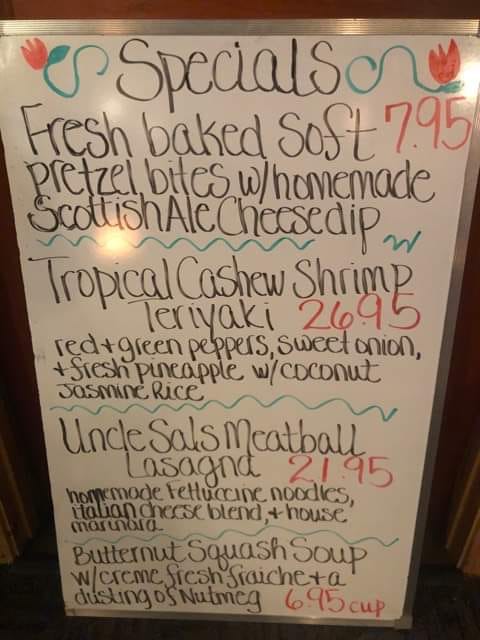 Specials
Fresh baked Soft 7.95
pretzel bites w/homemade
Scottish Ale Cheese dip
Tropical Cashew Shrimp
Teriyaki 26.95
red + green peppers, sweet onion,
+ fresh pineapple w/coconut
Jasmine Rice
Uncle Sals Meatball
Lasagna 21.95
homemade Fettuccine noodles,
italian cheese blend, + house
marinara
Butternut Squash Soup
w/creme fresh fraiche + a
dusting of Nutmeg 6.95 cup